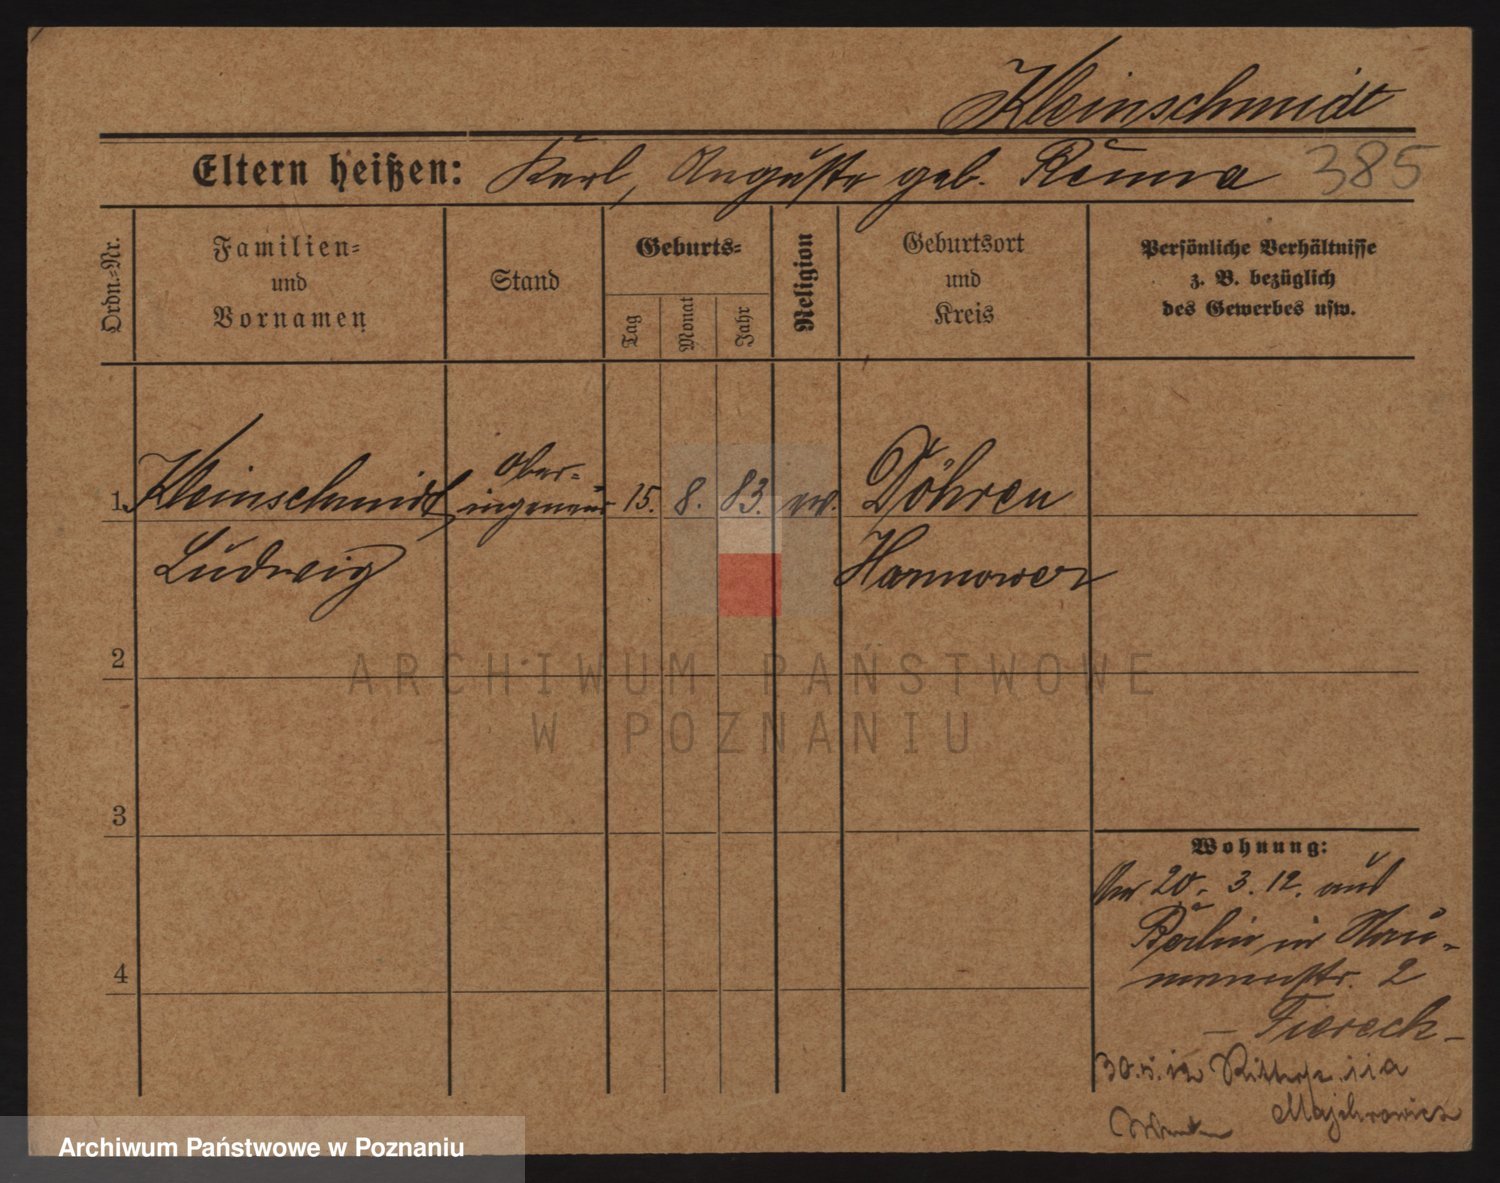 Kleinschmidt
Eltern heißen: Karl, Auguste geb. 385
Ordn.-Nr.
Familien-
und
Vornamen
Stand
Geburts-
Tag
Monat
Jahr
Religion
Geburtsort
und
Kreis
Persönliche Verhältnisse
z. B. bezüglich
des Gewerbes usw.
1. Kleinschmidt Ober- 15. 8. 83. ev. Döhren
ingenieur
Ludwig Hannower
2
ARCHIWUM PAŃSTWOWE
W POZNANIU
3
Wohnung:
20. 3. 12. aus
Berlin in Nau-
mannstr. 2
- Tiereck -
4
30. 12 11a
Majchrowicz
Archiwum Państwowe w Poznaniu